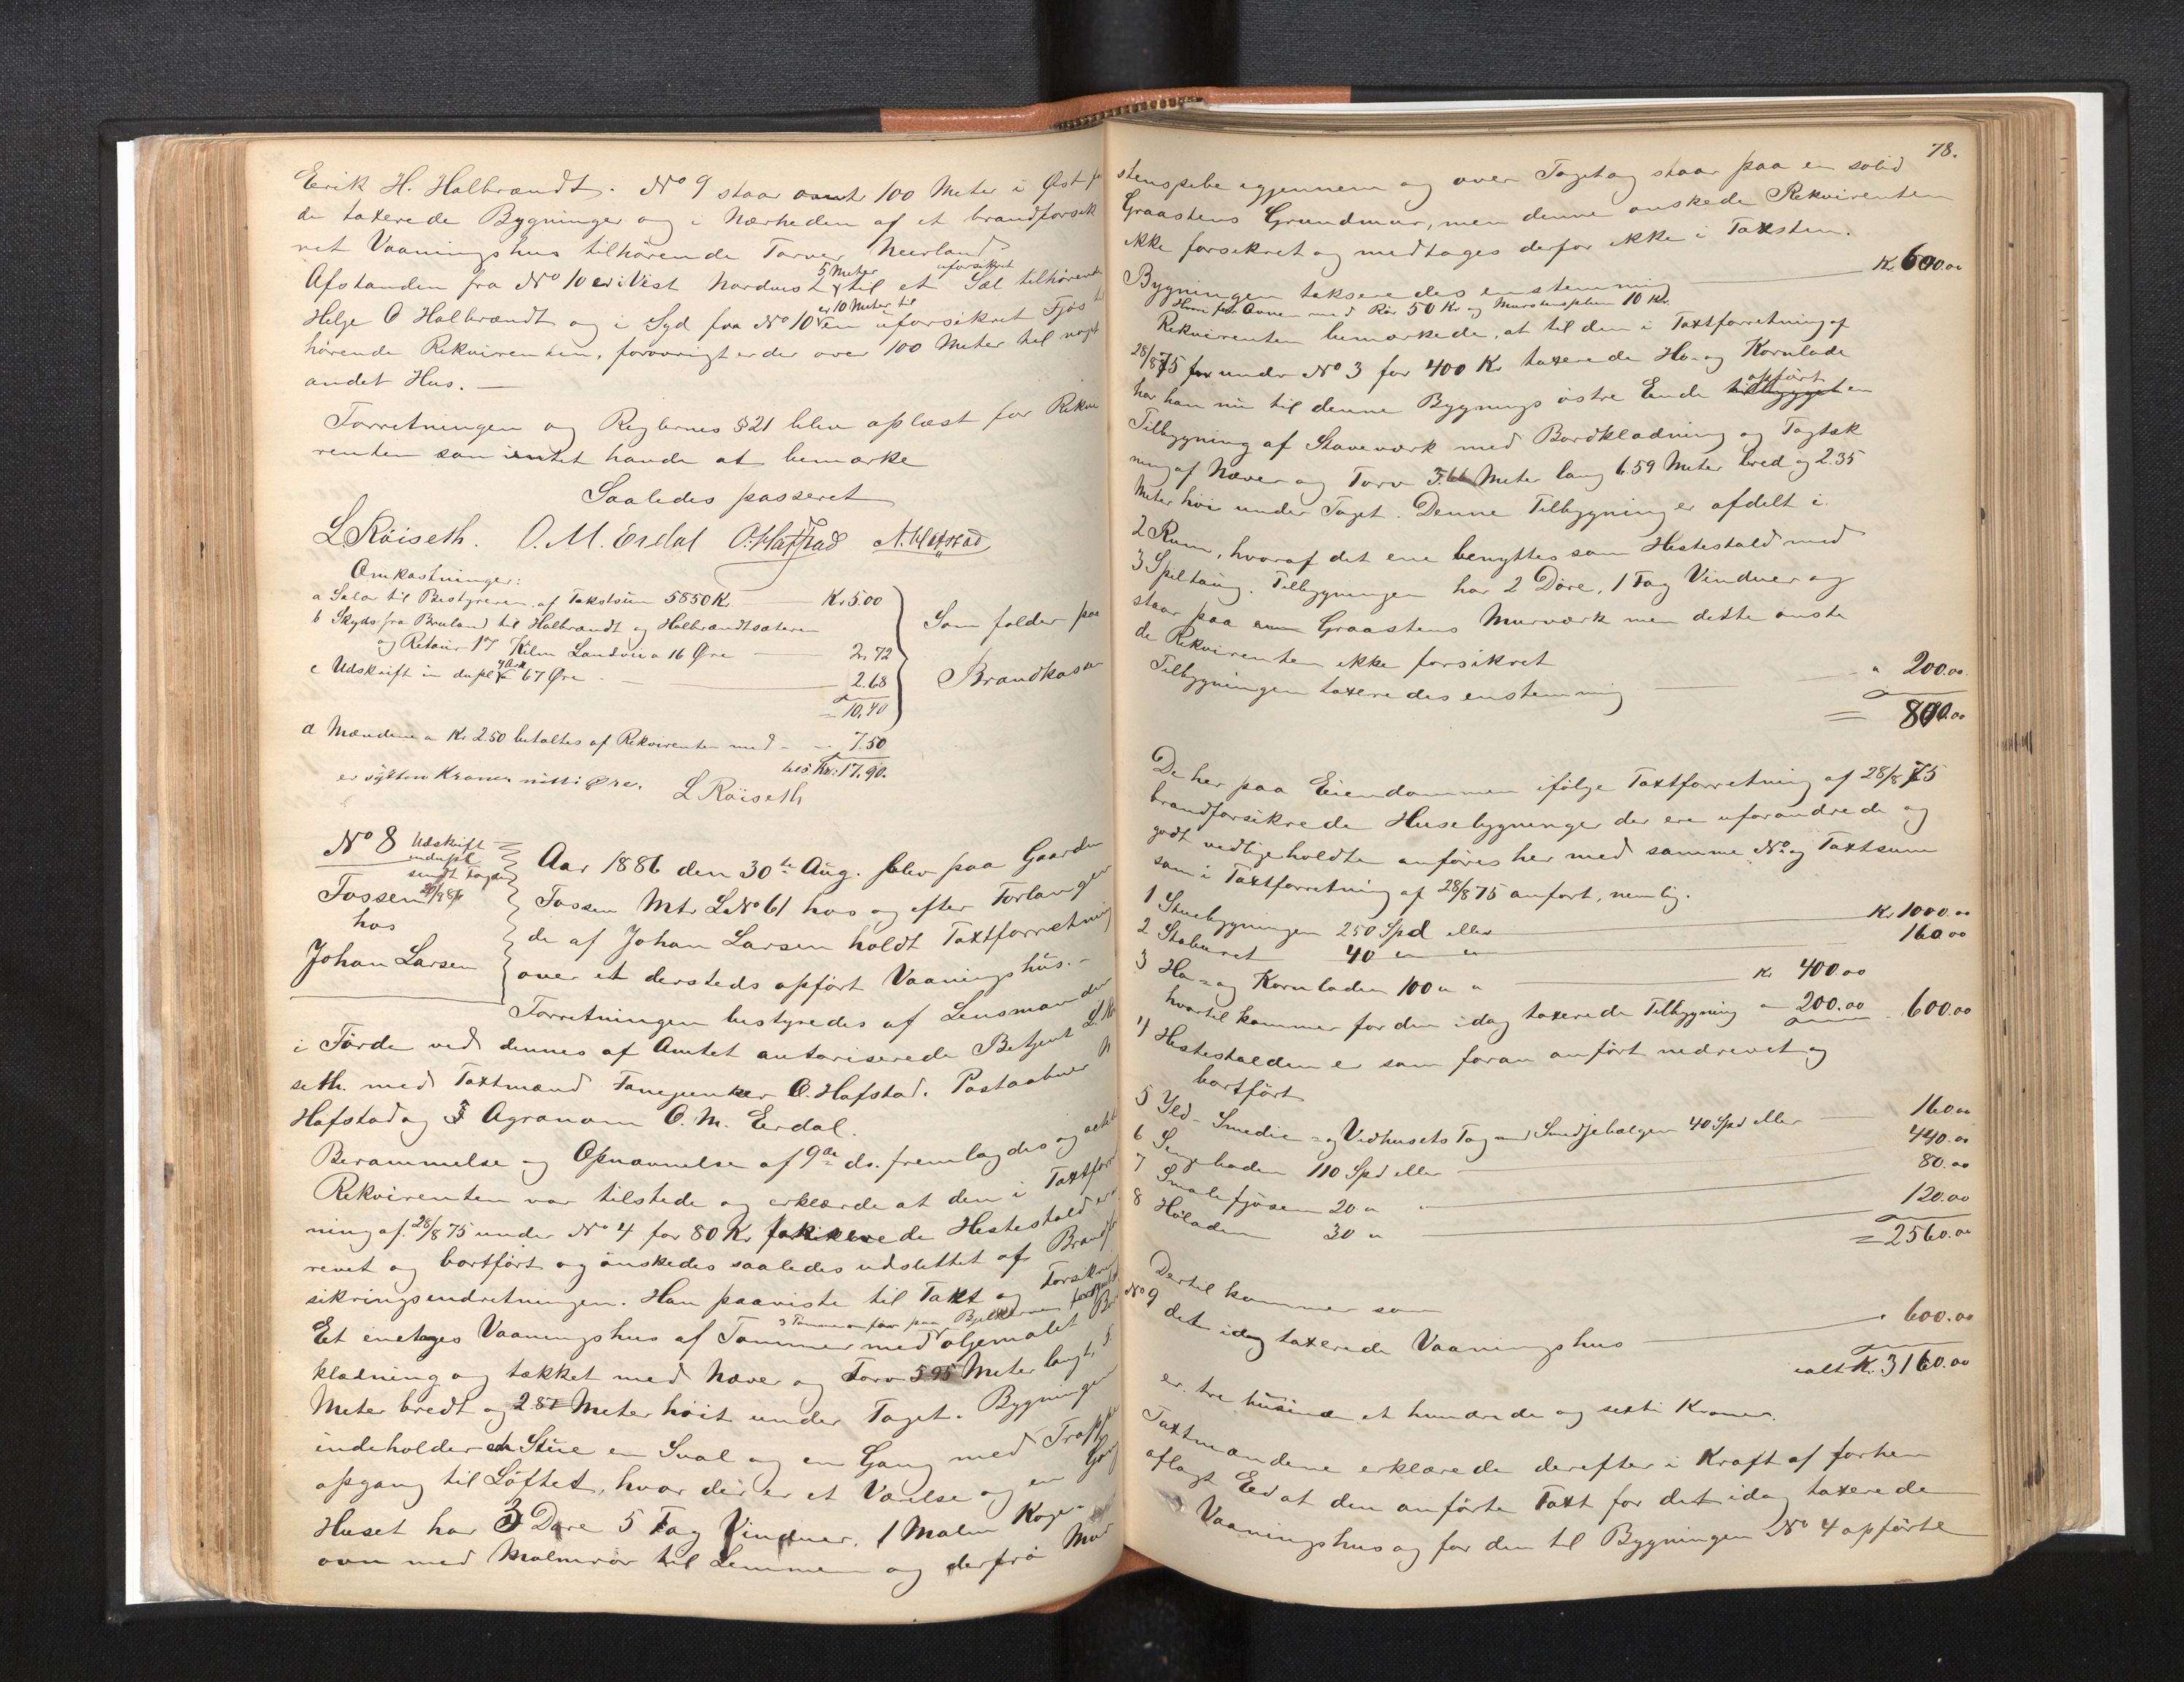 Eerik H. Halbrændt. No 9 staar omtr 100 Meter i Øst
de taxerede Bygninger og i Nærheden af et brandforsik
ret Vaaningshus tilhörende Torver Neerland
5 Meter uforsikret
Afstanden fra No 10 er i Vest Nordvest til et Sæl tilhörende
er 10 Meter til
Helje O Halbrændt og i Syd fra No 10 en uforsikret Fjøs
hörende Rekvirenten, forøvrigt er der over 100 Meter til noget
andet Hus. —
Forretningen og Reglernes § 21 blev oplæst for Rekvi
renten som intet havde at bemærke
Saaledes passeret
L. Röiseth. O. M. Erdal O. Hafstad A. Hafstad
Omkostninger:
a Salær til Bestyreren af Takstsum 5850 Kr — Kr 5.00
b Skyds fra Bruland til Halbrændt og Halbrændtsæteren
og Retour 17 Kilm Landvei a 16 Øre — 2.72
c Udskrift in dupl 4 Ark a 67 Øre — 2.68
= 10.40
Som falder paa
Brandkassen
d Mændene a Kr 2.50 betaltes af Rekvirenten med — 7.50
tils Kr: 17.90.
er sytten Kroner nitti Øre. L Röiseth
No 8 Udskrift
in dupl
sendt Fogden
Fossen
hos
Johan Larsen
Aar 1886 den 30te Aug. blev paa Gaarden
Fossen Mtr L No 61 hos og efter Forlangen
de af Johan Larsen holdt Taxtforretning
over et dersteds opfört Vaaningshus. —
Forretningen bestyredes af Lensmanden
i Förde ved dennes af Amtet autoriserede Betjent L. Rö
seth. med Taxtmænd Fanejunker O. Hafstad. Postaabner N
Hafstad og Agronom O. M. Eerdal.
Berammelse og Opnævnelse af 9de ds. fremlagdes og
Rekvirenten var tilstede og erklærde at den i Taxtforret
ning af 28/8 75 under No 4 for 80 Kr forsikrede Hestestald er
revet og bortfört og önskedes saaledes udslettet af Brandfor
sikringsindretningen. Han paaviste til Taxt og Forsikring
3 Tommer for paa Bjelkerne
Et enetages Vaaningshus af Tømmer med oljemalet Bor
klædning og tækket med Næver og Torv 5.95 Meter langt, 5
Meter bredt og 2.87 Meter höit under Taget. Bygningen
indeholder en Stue en Sval og en Gang med Trappe
opgang til Löftet, hvor der er et Værelse og en Gang
Huset har 3 Döre 5 Fag Vinduer, 1 Malm Koge-
ovn med Malmrör til Lemmen og derfra Mur
78.
stenspibe igjennem og over Taget og staar paa en solid
Graastens Grundmur, men denne önskede Rekvirenten
ikke forsikret og medtages derfor ikke i Taxsten.
Bygningen takseredes enstemmig — Kr 600.00
Heri for Ovnen med Rör 50 Kr og Murstenspiben 10 Kr.
Rekvirenten bemærkede, at til den i Taxtforretning af
28/8 75 under No 3 for 400 Kr taxerede Hø- og Kornlade
opfört
har han nu til denne Bygnings östre Ende tilbygget en
Tilbygning af Staveværk med Bordklædning og Tagtæk
ning af Næver og Torv 3.66 Meter lang 6.59 Meter bred og 2.35
Meter höi under Taget. Denne Tilbygning er afdelt i
2 Rum, hvoraf det ene benyttes som Hestestald med
3 Spiltaug. Tilbygningen har 2 Döre, 1 Fag Vinduer og
staar paa Graastens Murværk men dette önske
de Rekvirenten ikke forsikret
Tilbygningen taxeredes enstemmig — " 200.00
= 800.00
De her paa Eiendommen ifölge Taxtforretning af 28/8 75
brandforsikrede Husebygninger der ere uforandrede og
godt vedligeholdte anföres her med samme No og Taxtsum
som i Taxtforretning af 28/8 75 anfört, nemlig.
1 Stuebygningen 250 Spd eller — Kr 1000.00
2 Staburet 40 " " — 160.00
3 Hø- og Kornladen 100 " " — Kr 400.00
hvortil kommer for den idag taxerede Tilbygning " 200.00 — 600.00
4 Hestestalden er som foran anfört nedrevet og
bortfört
5 Ild- Smedie- og Vedhusets Tag med Smedjebælgen 40 Spd eller — 160.00
6 Sengeboden 110 Spd eller — 440.00
7 Smalefjösen 20 " — 80.00
8 Hölade 30 " — 120.00
= 2560.00
Dertil kommer som
No 9 det idag taxerede Vaaningshus — " 600.00
ialt Kr. 3160.00
er tre tusinde et hundrede og sexti Kroner.
Taxtmændene erklærede derefter i Kraft af forhen
aflagt Eed at den anförte Taxt for det idag taxerede
Vaaningshus og for den til Bygningen No 4 opförte